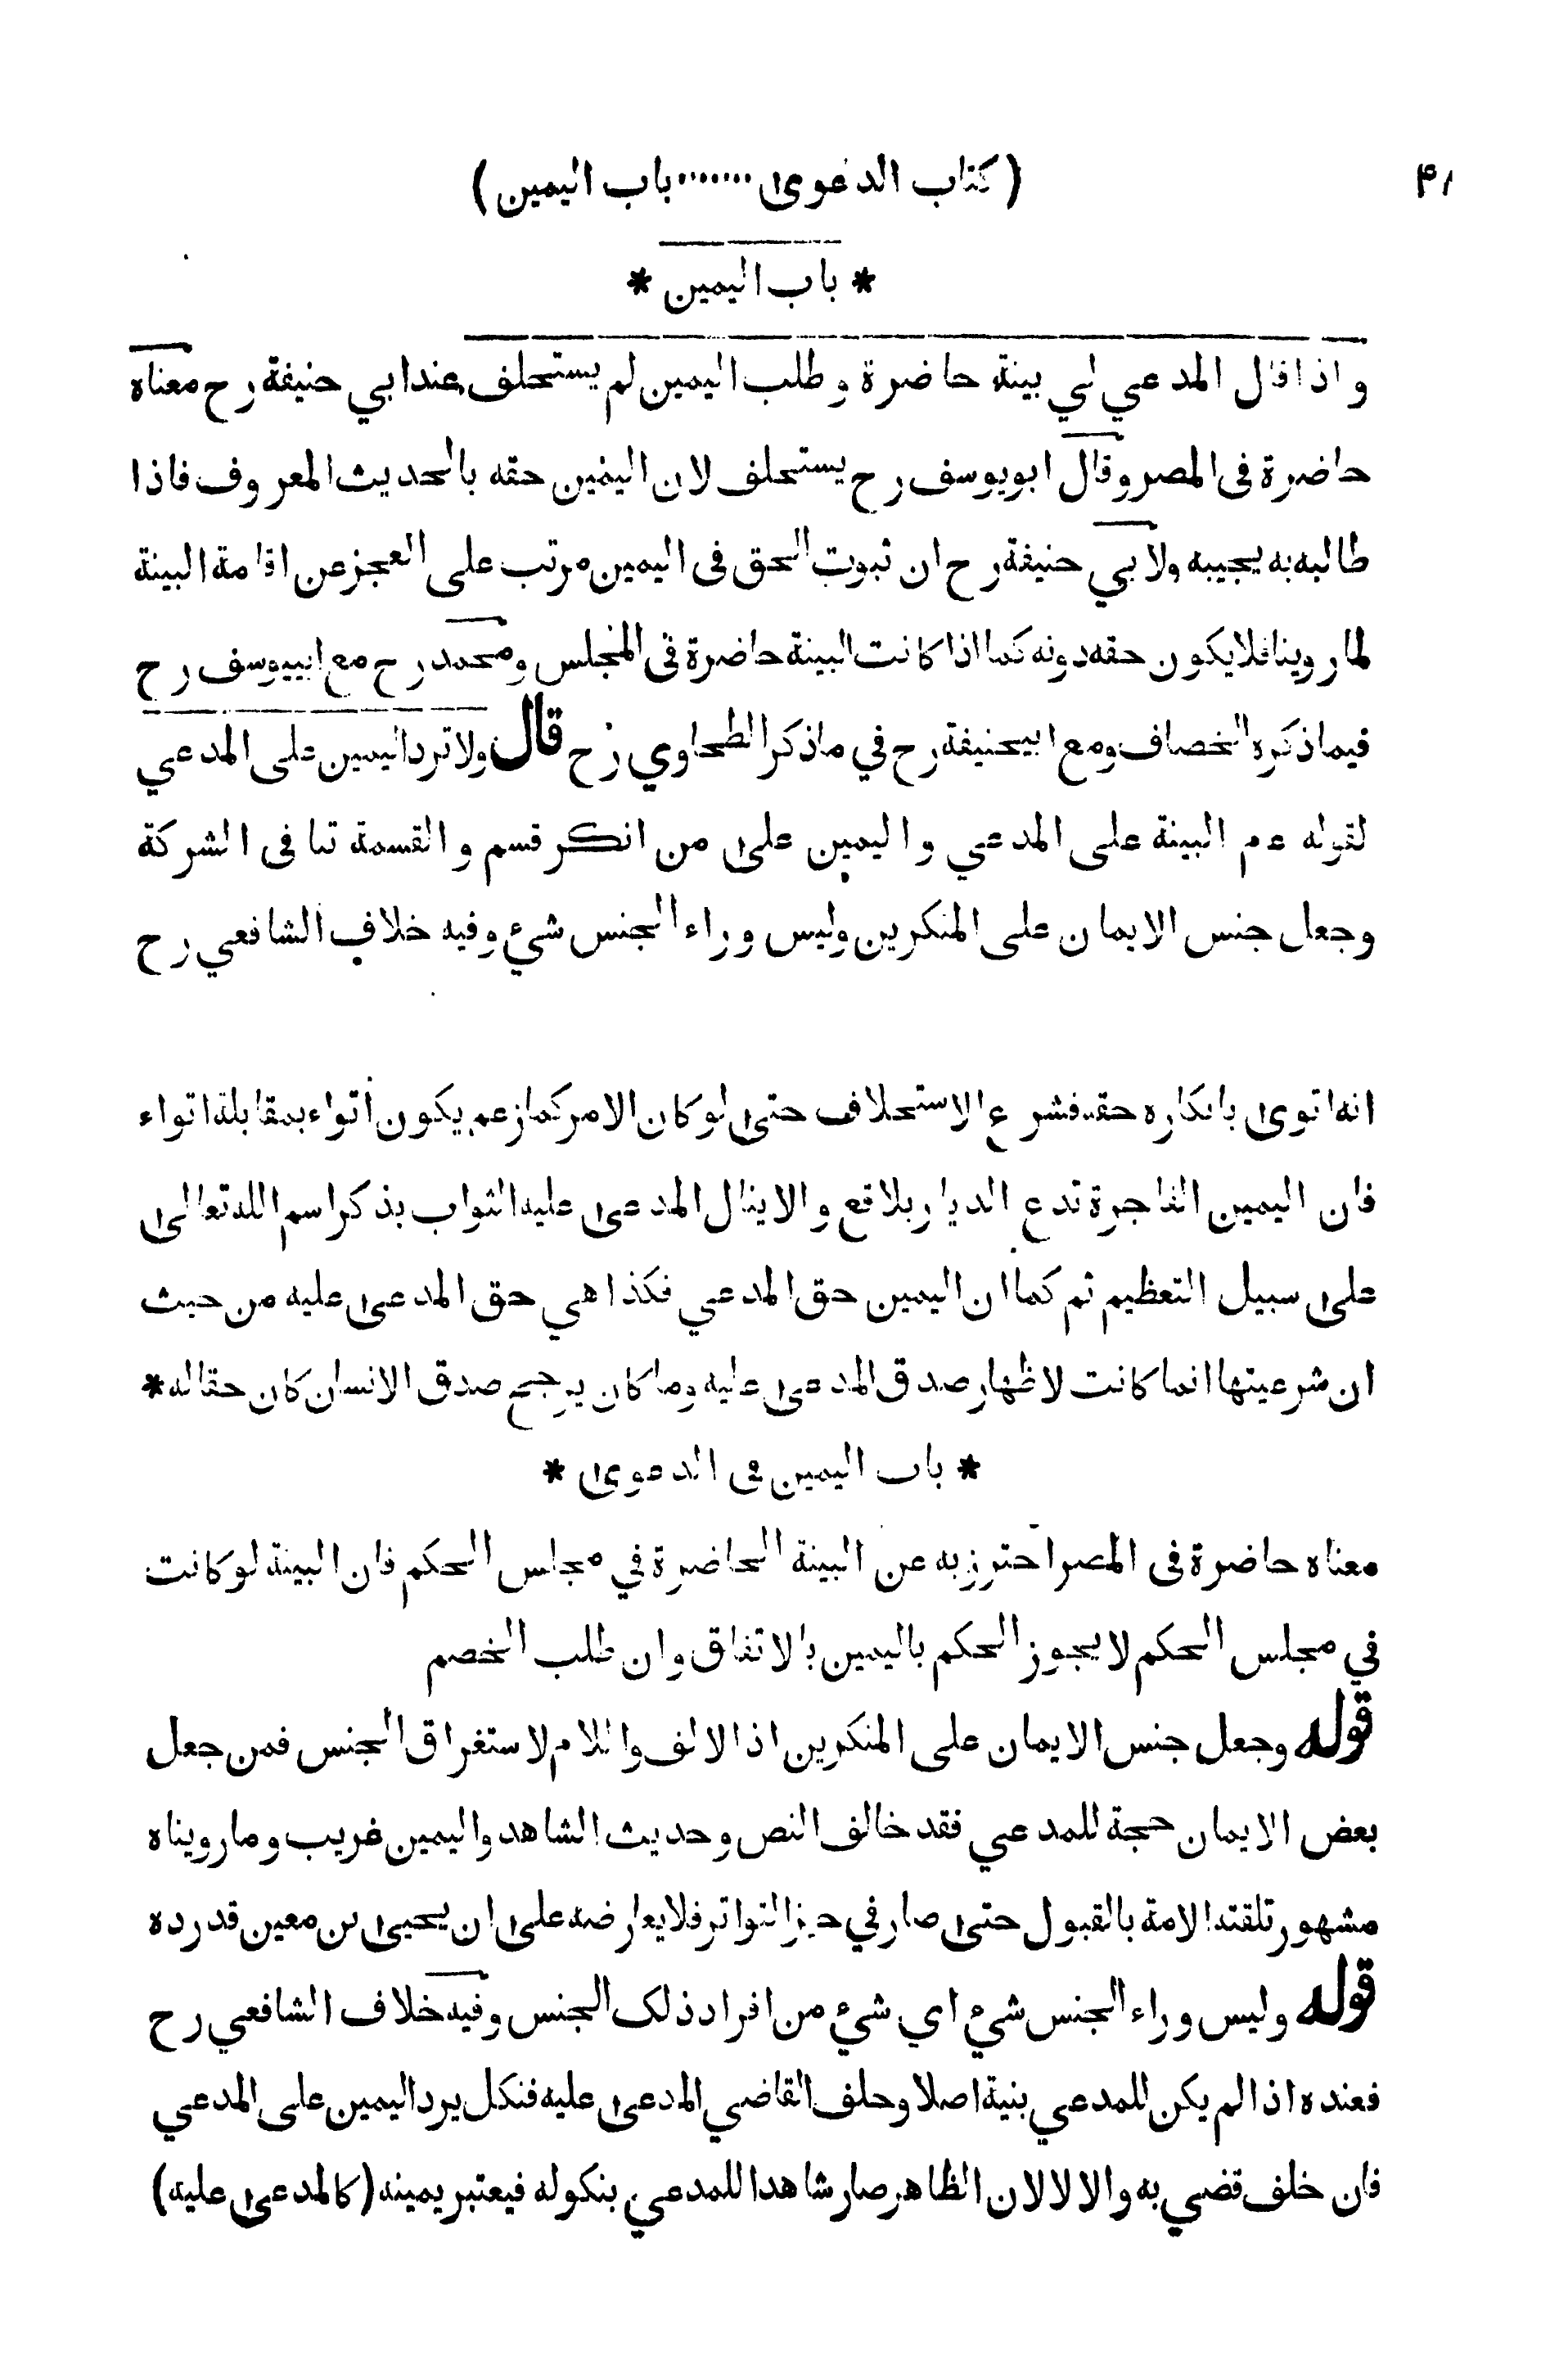 ( كتاب الدعوى ······· باب اليمين )
* باب اليمين *
واذا قال المدعي لي بينة حاضرة وطلب اليمين لم يستحلف عند ابي حنيفة رح معناه
حاضرة فى المصر وقال ابويوسف رح يستحلف لان اليمين حقه بالحديث المعروف فاذا
طالبه به يجيبه ولابي حنيفة رح ان ثبوت الحق فى اليمين مرتب على العجز عن اقامة البينة
لما روينا فلا يكون حقه دونه كما اذا كانت البينة حاضرة فى المجلس ومحمد رح مع ابييوسف رح
فيما ذكره الخصاف ومع ابيحنيفة رح في ما ذكر الطحاوي رح قال ولا ترد اليمين على المدعي
لقوله عم البينة على المدعي واليمين على من انكر قسم والقسمة تنا فى الشركة
وجعل جنس الايمان على المنكرين وليس وراء الجنس شيء وفيه خلاف الشافعي رح
انه اتوى بانكاره حقه فشرع الاستحلاف حتى لو كان الامر كما زعم يكون اتواء بمقابلة اتواء
فان اليمين الفاجرة تدع الديار بلاقع والا ينال المدعى عليه الثواب بذكر اسم الله تعالى
على سبيل التعظيم ثم كما ان اليمين حق المدعي فكذا هي حق المدعى عليه من حيث
ان شرعيتها انما كانت لاظهار صدق المدعى عليه وما كان يرجح صدق الانسان كان حقا له *
* باب اليمين فى الدعوى *
معناه حاضرة فى المصر احترز به عن البينة الحاضرة في مجلس الحكم فان البينة لو كانت
في مجلس الحكم لا يجوز الحكم باليمين بالاتفاق وان طلب الخصم
قوله وجعل جنس الايمان على المنكرين اذ الالف واللام لاستغراق الجنس فمن جعل
بعض الايمان حجة للمدعي فقد خالف النص وحديث الشاهد واليمين غريب وما رويناه
مشهور تلقته الامة بالقبول حتى صار في حيز التواتر فلا يعارضه على ان يحيى بن معين قد رده
قوله وليس وراء الجنس شيء اي شيء من افراد ذلك الجنس وفيه خلاف الشافعي رح
فعنده اذا لم يكن للمدعي بنية اصلا وحلف القاضي المدعى عليه فنكل يرد اليمين على المدعي
فان خلف قضي به والا لا لان الظاهر صار شاهدا للمدعي بنكوله فيعتبر يمينه ( كالمدعى عليه )